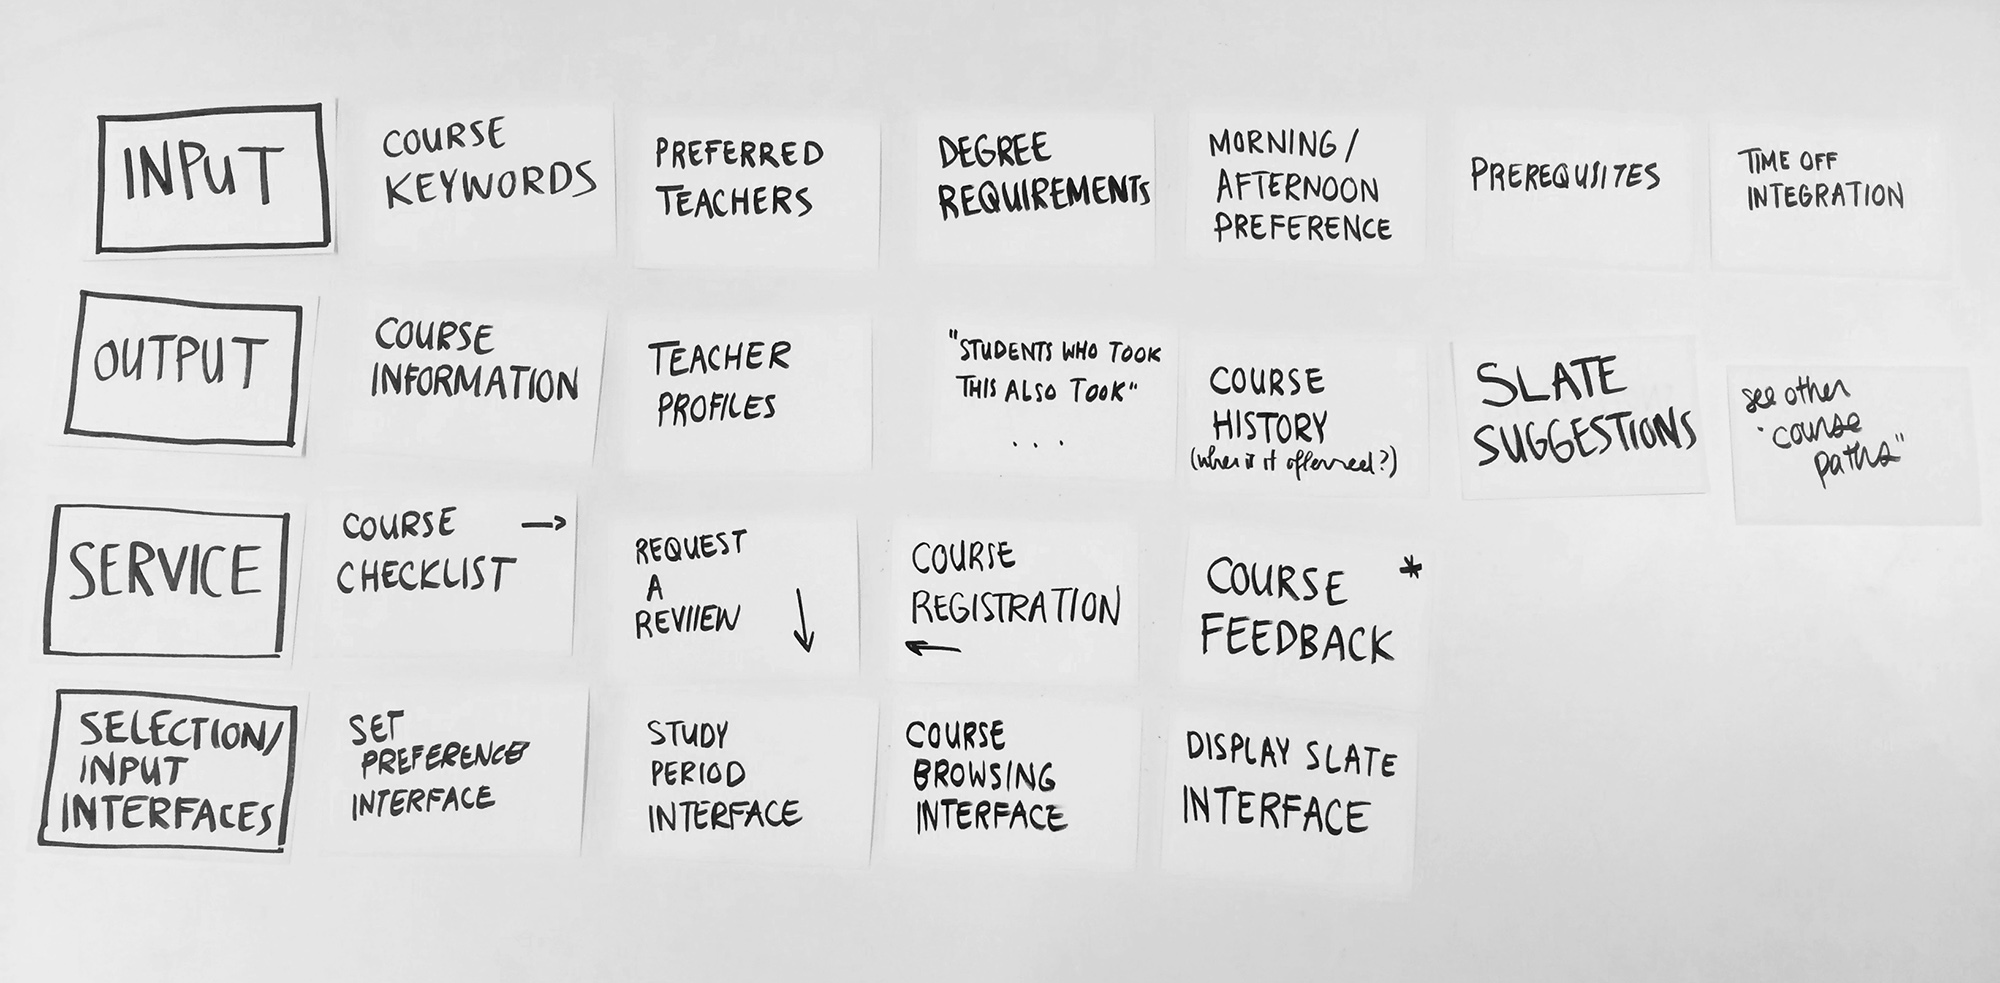 INPUT
COURSE
KEYWORDS
PREFERRED
TEACHERS
DEGREE
REQUIREMENTS
MORNING /
AFTERNOON
PREFERENCE
PREREQUSITES
TIME OFF
INTEGRATION
OUTPUT
COURSE
INFORMATION
TEACHER
PROFILES
"STUDENTS WHO TOOK
THIS ALSO TOOK"
. . .
COURSE
HISTORY
(when is it offerred?)
SLATE
SUGGESTIONS
see other
"course
paths"
SERVICE
COURSE →
CHECKLIST
REQUEST
A
REVIIEW ↓
COURSE
REGISTRATION
←
COURSE *
FEEDBACK
SELECTION/
INPUT
INTERFACES
SET
PREFERENCE
INTERFACE
STUDY
PERIOD
INTERFACE
COURSE
BROWSING
INTERFACE
DISPLAY SLATE
INTERFACE